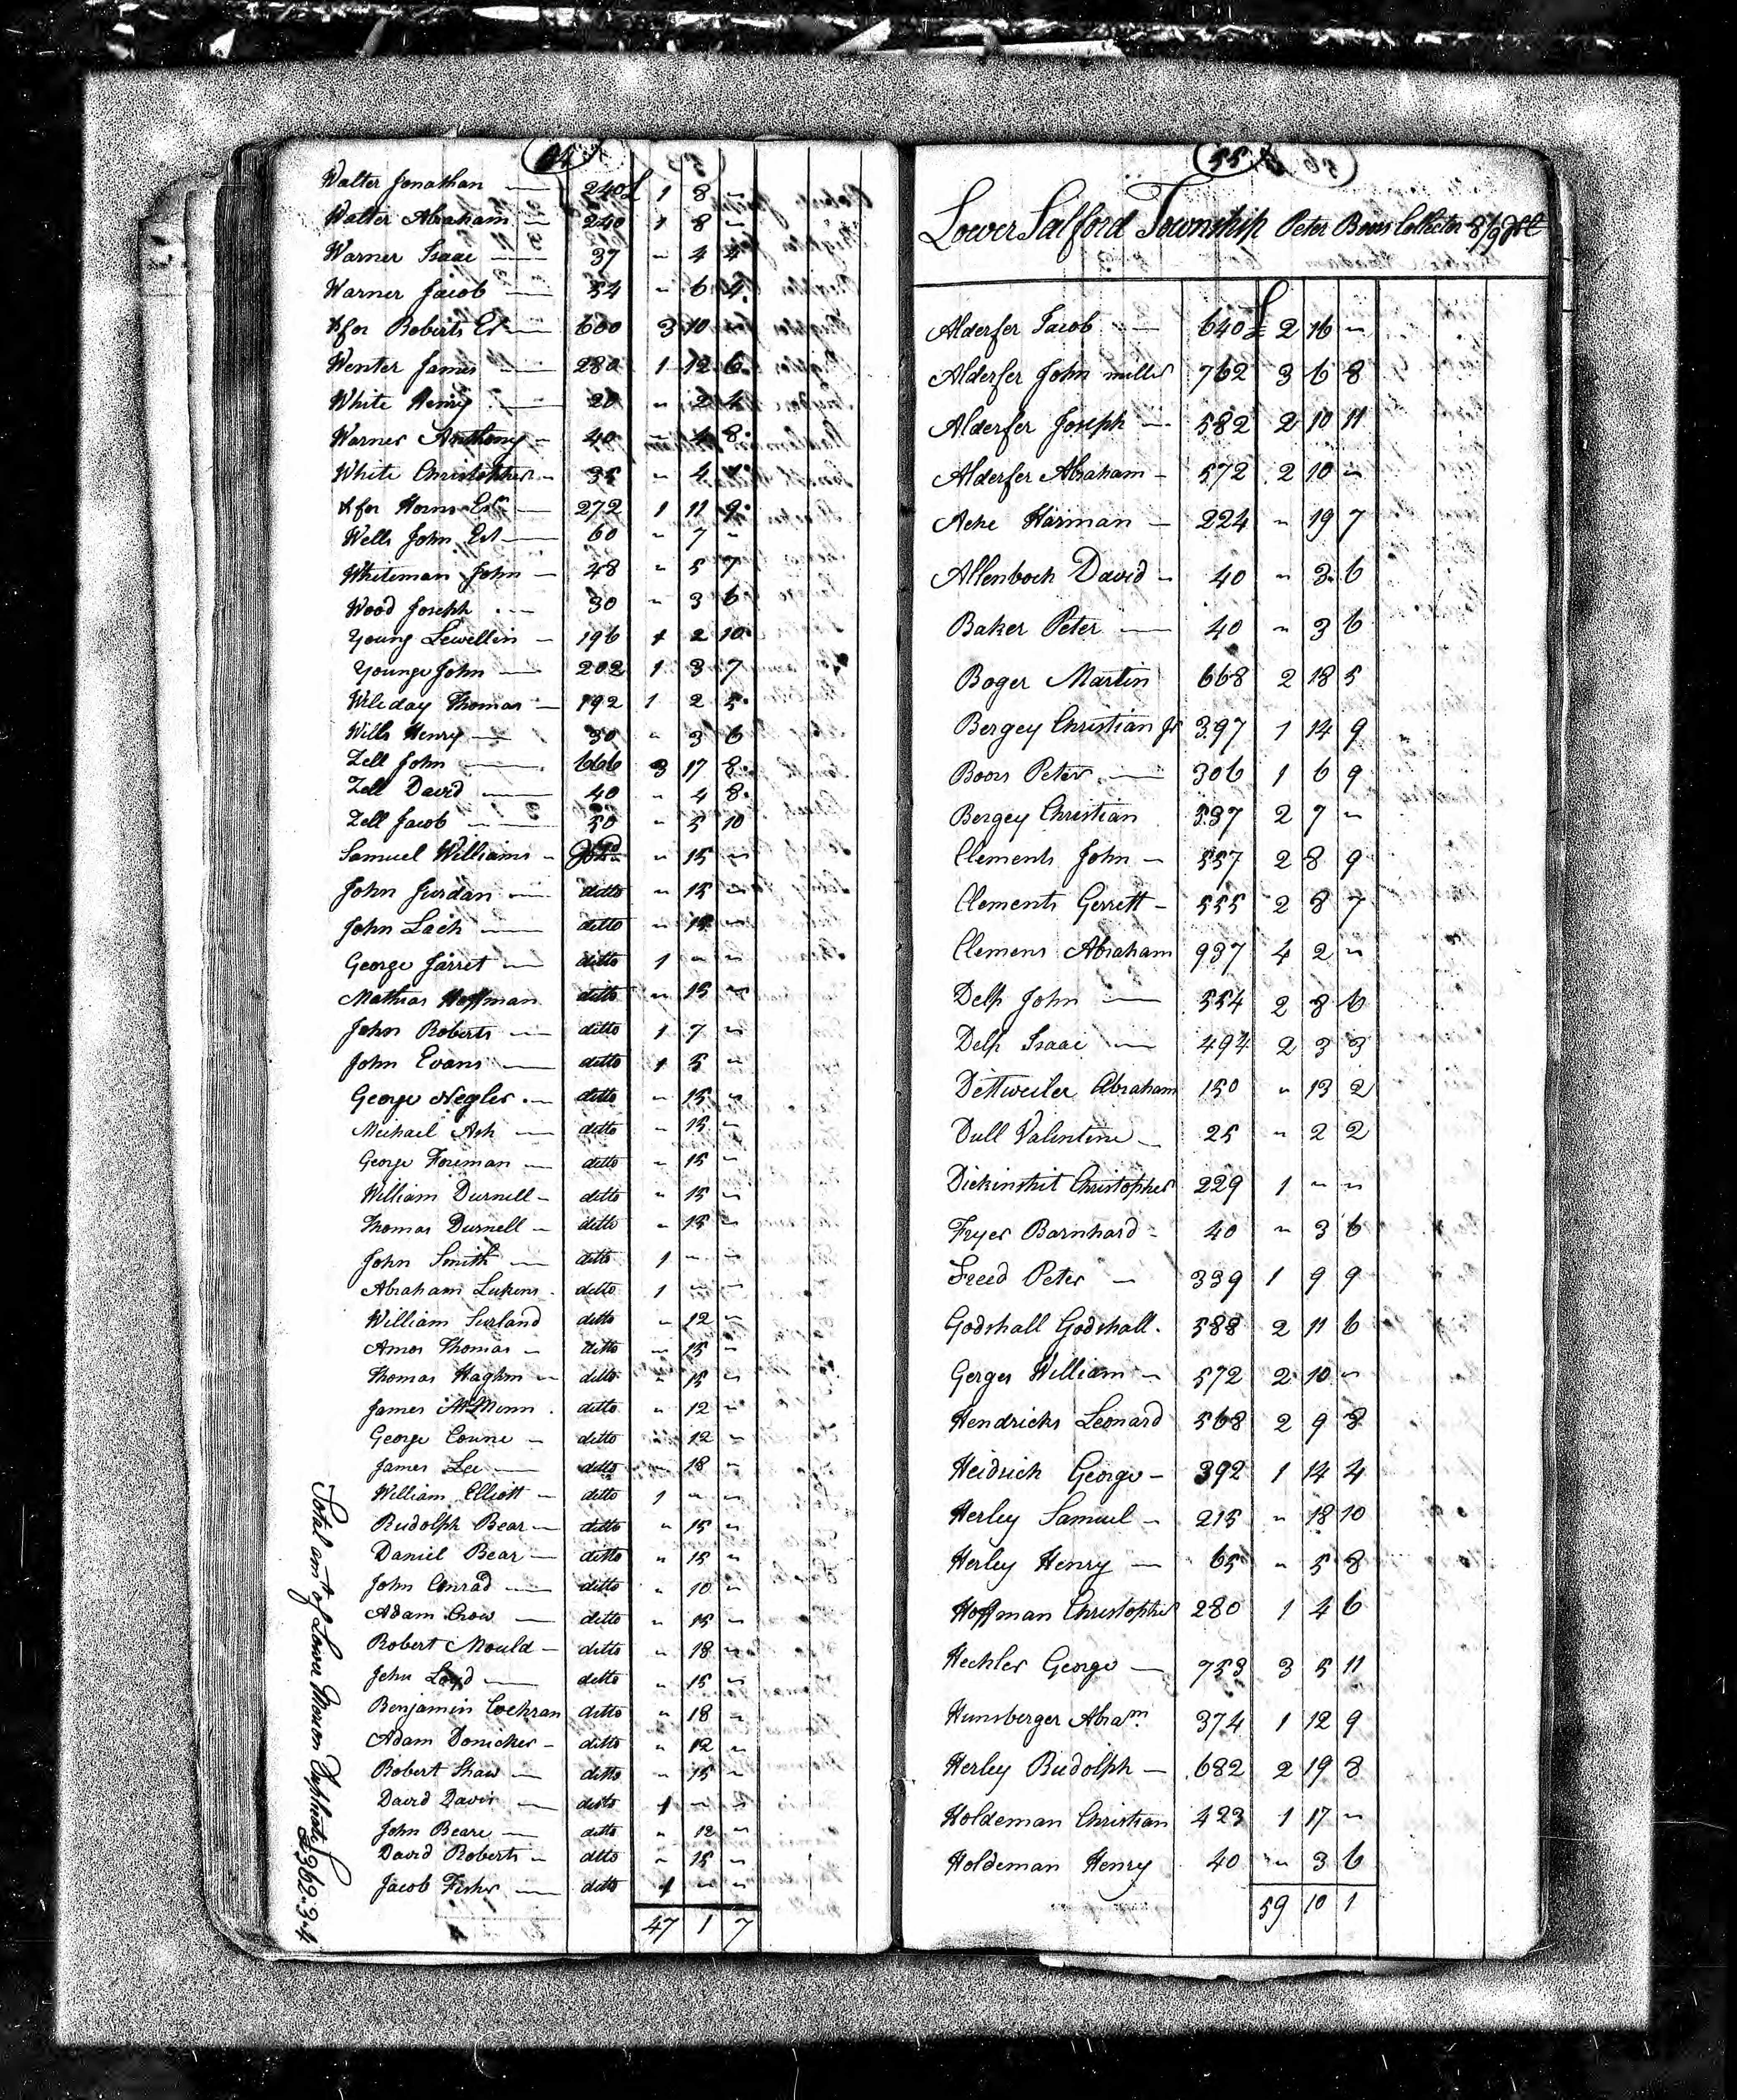 54
Walter Jonathan — 240 £ 1 8 "
Walter Abraham — 240 1 8 "
Warner Isaac — 37 " 4 4
Warner Jacob — 54 " 6 4
& for Roberts Est — 600 3 10 "
Wenter James — 280 1 12 6
White Henry — 20 " 2 4
Warner Anthony — 40 " 4 8
White Christopher — 35 " 4 1
& for Horns Est — 272 1 11 9
Wells John Est — 60 " 7 "
Whiteman John — 48 " 5 7
Wood Joseph — 30 " 3 6
Young Lewellin — 196 1 2 10
Younge John — 202 1 3 7
Wileday Thomas — 192 1 2 5
Wills Henry — 30 " 3 6
Zell John — 666 3 17 8
Zell David — 40 " 4 8
Zell Jacob — 50 " 5 10
Samuel Williams — " 15 "
John Jurdan — ditto " 15 "
John Lach — ditto " 15 "
George Jarret — ditto 1 " "
Mathias Hoffman ditto " 15 "
John Roberts — ditto 1 7 "
John Evans — ditto 1 5 "
George Negler — ditto " 15 "
Michael Ash — ditto " 15 "
George Foreman — ditto " 15 "
William Durnell — ditto " 15 "
Thomas Durnell — ditto " 15 "
John Smith — ditto 1 " "
Abraham Lukens ditto 1 " "
William Surland ditto " 12 "
Amos Thomas — ditto " 15 "
Thomas Haghm — ditto " 15 "
James McMinn ditto " 12 "
George Coune — ditto " 12 "
James Lee — ditto " 18 "
William Elliott — ditto 1 " "
Rudolph Bear — ditto " 15 "
Daniel Bear — ditto " 15 "
John Conrad — ditto " 10 "
Adam Crow — ditto " 15 "
Robert Mould — ditto " 18 "
John Loyd — ditto " 15 "
Benjamin Cochran ditto " 18 "
Adam Donicker — ditto " 12 "
Robert Shaw — ditto " 15 "
David Davis — ditto 1 " "
John Beare — ditto " 12 "
David Roberts — ditto " 15 "
Jacob Fisher — ditto 1 " "
47 1 7
Total amt of Lower Merion Duplicate £362..3..4
55
Lower Salford Township Peter Boors Collector
Alderfer Jacob — 640 £ 2 16 "
Alderfer John miller 762 3 6 8
Alderfer Joseph — 582 2 10 11
Alderfer Abraham — 572 2 10 "
Ache Harman — 224 " 19 7
Allenboch David — 40 " 3 6
Baker Peter — 40 " 3 6
Boger Martin 668 2 18 5
Bergey Christian Jr 397 1 14 9
Boors Peter — 306 1 6 9
Bergey Christian 537 2 7 "
Clements John — 557 2 8 9
Clements Gerrett — 555 2 8 7
Clemens Abraham 937 4 2 "
Delp John — 554 2 8 6
Delp Isaac — 494 2 3 3
Dettweiler Abraham 150 " 13 2
Dull Valentine — 25 " 2 2
Dickinshit Christopher 229 1 " "
Fryer Barnhard — 40 " 3 6
Freed Peter — 339 1 9 9
Godshall Godshall 588 2 11 6
Gerges William — 572 2 10 "
Hendricks Leonard 568 2 9 8
Heidrich George — 392 1 14 4
Herley Samuel — 215 " 18 10
Herley Henry — 65 " 5 8
Hoffman Christopher 280 1 4 6
Hechler George — 753 3 5 11
Hunsberger Abram 374 1 12 9
Herley Rudolph — 682 2 19 8
Holdeman Christian 423 1 17 "
Holdeman Henry 40 " 3 6
59 10 1